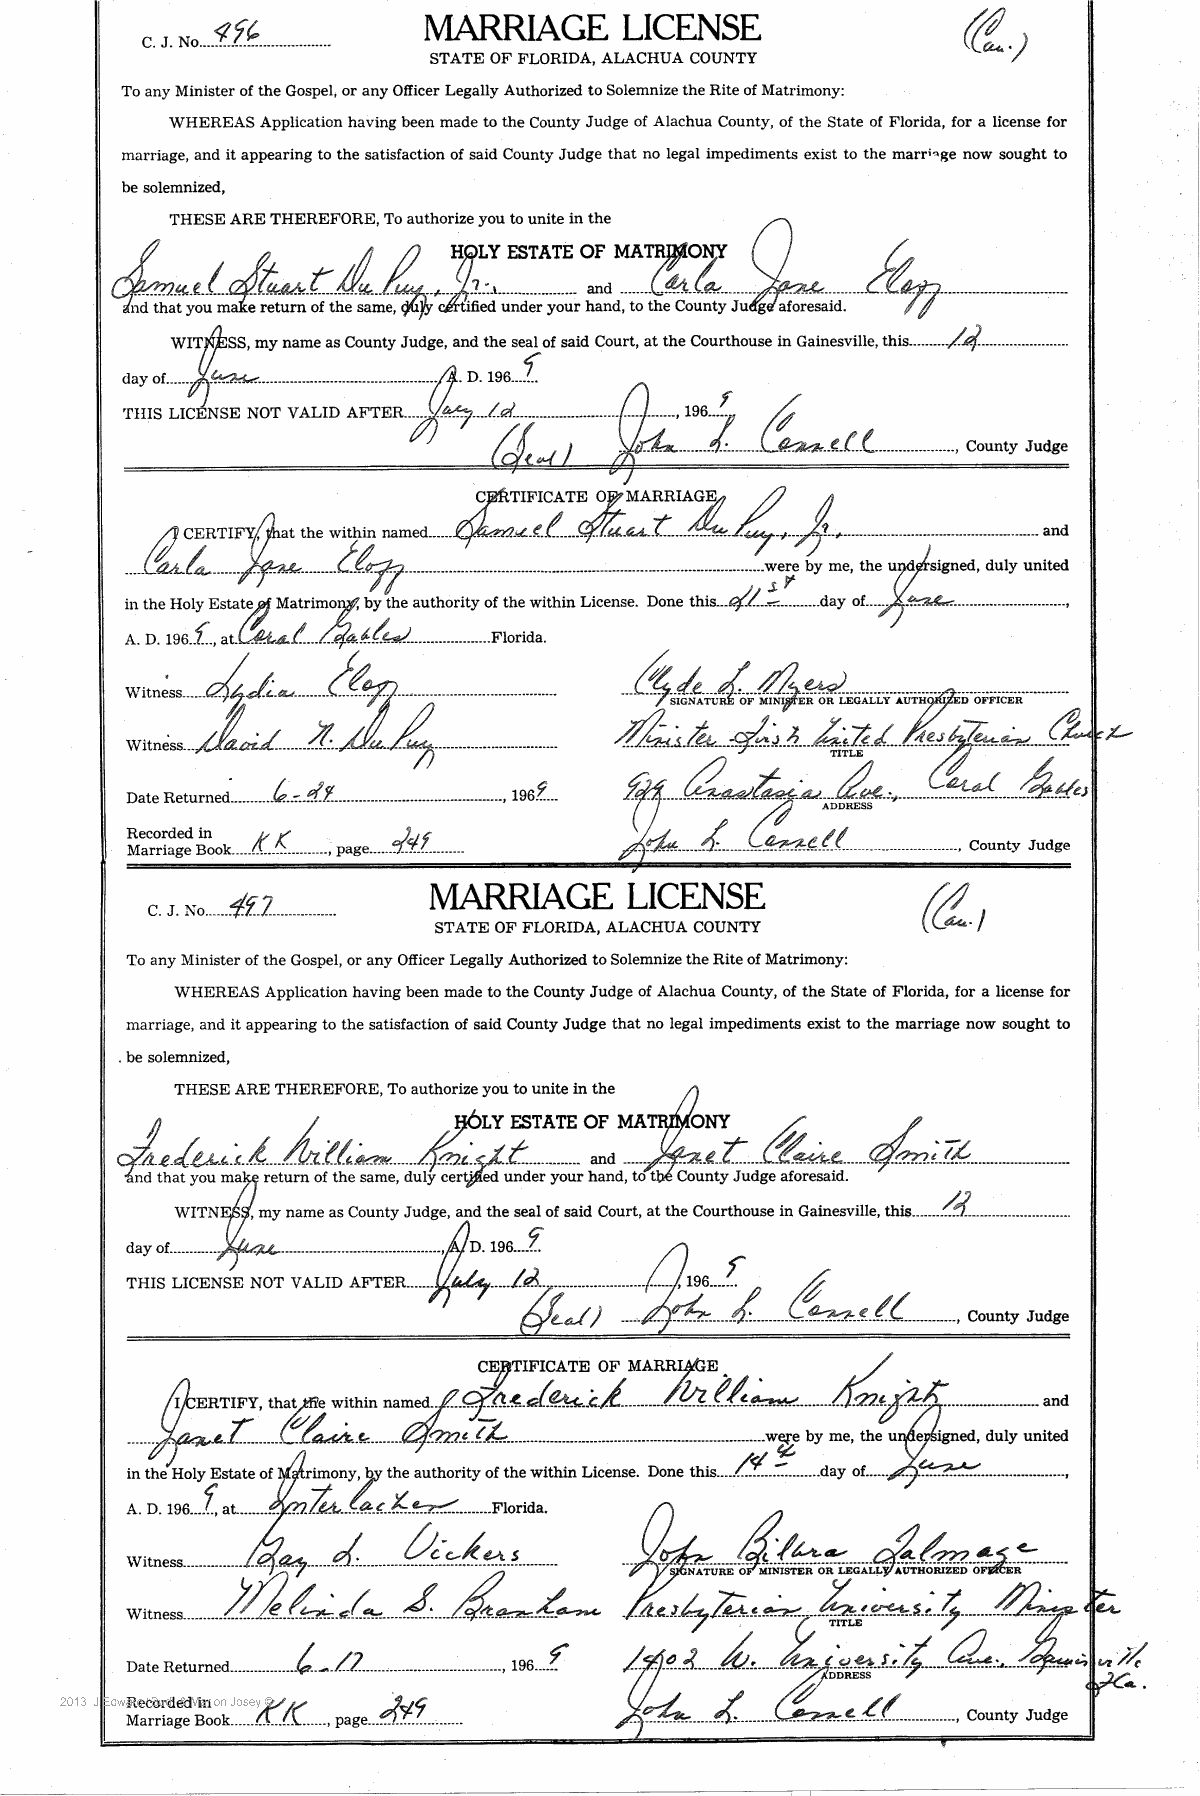 C. J. No. 496
MARRIAGE LICENSE
(Cau.)
STATE OF FLORIDA, ALACHUA COUNTY
To any Minister of the Gospel, or any Officer Legally Authorized to Solemnize the Rite of Matrimony:
WHEREAS Application having been made to the County Judge of Alachua County, of the State of Florida, for a license for
marriage, and it appearing to the satisfaction of said County Judge that no legal impediments exist to the marriage now sought to
be solemnized,
THESE ARE THEREFORE, To authorize you to unite in the
HOLY ESTATE OF MATRIMONY
Samuel Stuart Du Puy, Jr., and Carla Jane Elozz
and that you make return of the same, duly certified under your hand, to the County Judge aforesaid.
WITNESS, my name as County Judge, and the seal of said Court, at the Courthouse in Gainesville, this 12
day of June A. D. 1969
THIS LICENSE NOT VALID AFTER July 12, 1969
(Seal) John L. Connell, County Judge
CERTIFICATE OF MARRIAGE
I CERTIFY, that the within named Samuel Stuart Du Puy, Jr. and
Carla Jane were by me, the undersigned, duly united
in the Holy Estate of Matrimony, by the authority of the within License. Done this 21st day of June,
A. D. 1969, at Coral Gables Florida.
Witness Lydia
Clyde L. Myers
SIGNATURE OF MINISTER OR LEGALLY AUTHORIZED OFFICER
Witness David N. Du Puy
Minister - First United Presbyterian Church
TITLE
Date Returned 6-24, 1969
929 Anastasia Ave., Coral Gables
ADDRESS
Recorded in
Marriage Book KK, page 249
John L. Connell, County Judge
C. J. No. 497
MARRIAGE LICENSE
(Cau.)
STATE OF FLORIDA, ALACHUA COUNTY
To any Minister of the Gospel, or any Officer Legally Authorized to Solemnize the Rite of Matrimony:
WHEREAS Application having been made to the County Judge of Alachua County, of the State of Florida, for a license for
marriage, and it appearing to the satisfaction of said County Judge that no legal impediments exist to the marriage now sought to
be solemnized,
THESE ARE THEREFORE, To authorize you to unite in the
HOLY ESTATE OF MATRIMONY
Frederick William Knight and Janet Claire Smith
and that you make return of the same, duly certified under your hand, to the County Judge aforesaid.
WITNESS, my name as County Judge, and the seal of said Court, at the Courthouse in Gainesville, this 12
day of June, A. D. 1969
THIS LICENSE NOT VALID AFTER July 12, 1969
(Seal) John L. Connell, County Judge
CERTIFICATE OF MARRIAGE
I CERTIFY, that the within named Frederick William Knight and
Janet Claire Smith were by me, the undersigned, duly united
in the Holy Estate of Matrimony, by the authority of the within License. Done this 14th day of June,
A. D. 1969, at Interlachen Florida.
Witness Gay L. Vickers
John Talmage
SIGNATURE OF MINISTER OR LEGALLY AUTHORIZED OFFICER
Witness Melinda S. Branham
Presbyterian University Minister
TITLE
Date Returned 6-17, 1969
1402 W. University Ave., Gainesville
Fla.
ADDRESS
Recorded in
Marriage Book KK, page 249
John L. Connell, County Judge